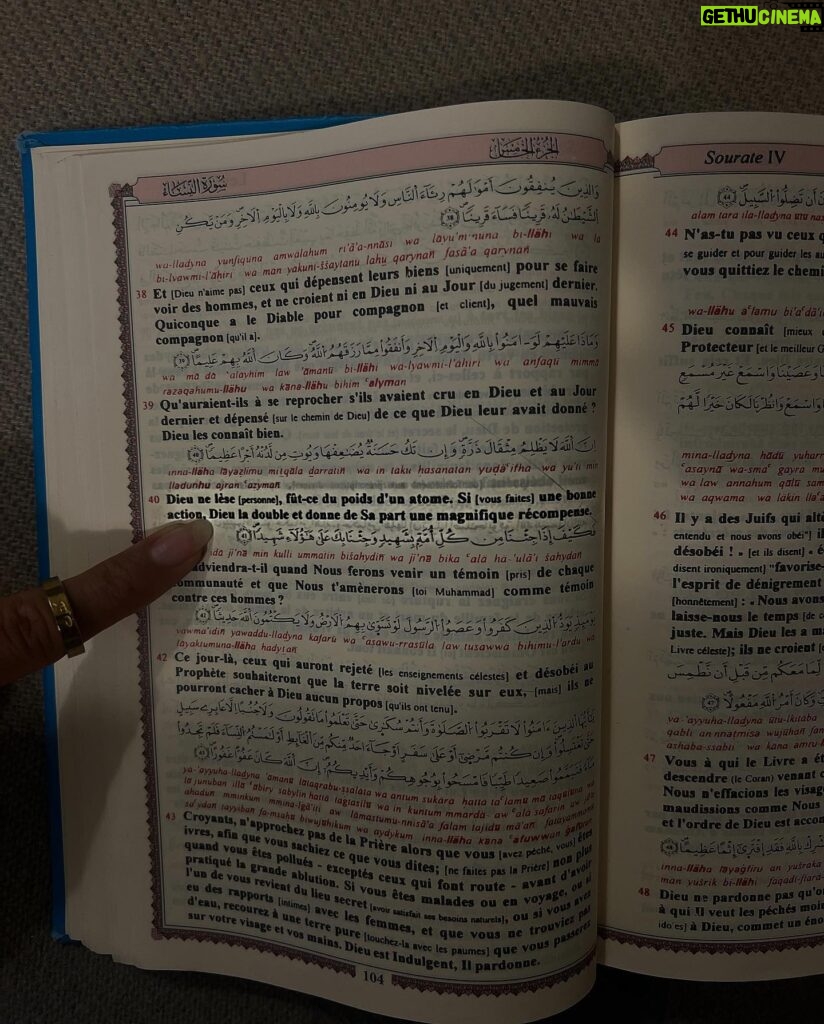 GETHUCINEMA
سورة النساء
الجزء الخامس
وَالَّذِينَ يُنفِقُونَ أَمْوَالَهُمْ رِئَاءَ النَّاسِ وَلَا يُؤْمِنُونَ بِاللَّهِ وَلَا بِالْيَوْمِ الْآخِرِ وَمَن يَكُنِ
الشَّيْطَانُ لَهُ قَرِينًا فَسَاءَ قَرِينًا
wa-lladyna yunfiquna amwalahum ri'ā'a-nnāsi wa layu'minuna bi-llāhi wa la
bi-lyawmi-l'āhiri wa man yakuni-ššaytanu lahu qarynañ fasā'a qarynañ
38 Et [Dieu n'aime pas] ceux qui dépensent leurs biens [uniquement] pour se faire
voir des hommes, et ne croient ni en Dieu ni au Jour [du jugement] dernier.
Quiconque a le Diable pour compagnon [et client], quel mauvais
compagnon [qu'il a].
وَمَاذَا عَلَيْهِمْ لَوْ ءَامَنُوا بِاللَّهِ وَالْيَوْمِ الْآخِرِ وَأَنفَقُوا مِمَّا رَزَقَهُمُ اللَّهُ وَكَانَ اللَّهُ بِهِمْ عَلِيمًا
wa mā dā 'alayhim law 'āmanū bi-llāhi wa-lyawmi-l'ahiri wa anfaqū mimmā
razaqahumu-llāhu wa kana-llāhu bihim 'alyman
39 Qu'auraient-ils à se reprocher s'ils avaient cru en Dieu et au Jour
dernier et dépensé [sur le chemin de Dieu] de ce que Dieu leur avait donné ?
Dieu les connaît bien.
إِنَّ اللَّهَ لَا يَظْلِمُ مِثْقَالَ ذَرَّةٍ وَإِن تَكُ حَسَنَةً يُضَاعِفْهَا وَيُؤْتِ مِن لَّدُنْهُ أَجْرًا عَظِيمًا
inna-llāha lāyazlimu mitqāla darratiñ wa in taku hasanatan yudā'ifha wa yu'ti mir
lladunhu ajran 'azyman
40 Dieu ne lèse [personne], fût-ce du poids d'un atome. Si [vous faites] une bonne
action, Dieu la double et donne de Sa part une magnifique récompense.
فَكَيْفَ إِذَا جِئْنَا مِن كُلِّ أُمَّةٍ بِشَهِيدٍ وَجِئْنَا بِكَ عَلَىٰ هَٰؤُلَاءِ شَهِيدًا
ji'nā min kulli ummatin bišahydiñ wa ji'nā bika 'alā hā-'ulā'i šahydan
adviendra-t-il quand Nous ferons venir un témoin [pris] de chaque
communauté et que Nous t'amènerons [toi Muhammad] comme témoin
contre ces hommes ?
يَوْمَئِذٍ يَوَدُّ الَّذِينَ كَفَرُوا وَعَصَوُا الرَّسُولَ لَوْ تُسَوَّىٰ بِهِمُ الْأَرْضُ وَلَا يَكْتُمُونَ اللَّهَ حَدِيثًا
yawma'idiñ yawaddu-lladyna kafarū wa 'asawu-rrasūla law tusawwā bihimu-l'ardu wa
layaktumuna-llāha hadytañ
42 Ce jour-là, ceux qui auront rejeté [les enseignements célestes] et désobéi au
Prophète souhaiteront que la terre soit nivelée sur eux, [mais] ils ne
pourront cacher à Dieu aucun propos [qu'ils ont tenu].
يَا أَيُّهَا الَّذِينَ ءَامَنُوا لَا تَقْرَبُوا الصَّلَاةَ وَأَنتُمْ سُكَارَىٰ حَتَّىٰ تَعْلَمُوا مَا تَقُولُونَ وَلَا جُنُبًا إِلَّا عَابِرِي سَبِيلٍ
حَتَّىٰ تَغْتَسِلُوا وَإِن كُنتُم مَّرْضَىٰ أَوْ عَلَىٰ سَفَرٍ أَوْ جَاءَ أَحَدٌ مِّنكُم مِّنَ الْغَائِطِ أَوْ لَامَسْتُمُ النِّسَاءَ فَلَمْ تَجِدُوا
مَاءً فَتَيَمَّمُوا صَعِيدًا طَيِّبًا فَامْسَحُوا بِوُجُوهِكُمْ وَأَيْدِيكُمْ إِنَّ اللَّهَ كَانَ عَفُوًّا غَفُورًا
43 Croyants, n'approchez pas de la Prière alors que vous [avez péché, vous] êtes
ivres, afin que vous sachiez ce que vous dites; [ne faites pas la Prière] non plus
quand vous êtes pollués - exceptés ceux qui font route - avant d'avoir
pratiqué la grande ablution. Si vous êtes malades ou en voyage, ou si
l'un de vous revient du lieu secret [avoir satisfait ses besoins naturels], ou si vous avez
eu des rapports [intimes] avec les femmes, et que vous ne trouviez pas
d'eau, recourez à une terre pure [touchez-la avec les paumes] que vous passerez
sur votre visage et vos mains. Dieu est Indulgent, Il pardonne.
104
Sourate IV
أَن تَضِلُّوا السَّبِيلَ
alam tara ila-lladyna
44 N'as-tu pas vu ceux
se guider et pour guider les
vous quittiez le chemi
wa-llāhu a'lamu
45 Dieu connaît [mieux
Protecteur [et le meilleur
وَعَصَيْنَا وَاسْمَعْ غَيْرَ مُسْمَعٍ
وَاسْمَعْ وَانظُرْنَا لَكَانَ خَيْرًا لَّهُمْ
mina-lladyna hādū
'asaynā wa-sma' gayra
wa law annahum qālū
wa aqwama wa lākin
46 Il y a des Juifs qui
entendu et nous avons obéi"]
désobéi ! » [et ils disent] «
disent ironiquement] "favorise-
l'esprit de dénigrement
[honnêtement] : « Nous avons
laisse-nous le temps [de
juste. Mais Dieu les a
Livre céleste]; ils ne croient
لِّمَا مَعَكُم مِّن قَبْلِ أَن نَّطْمِسَ
وَكَانَ أَمْرُ اللَّهِ مَفْعُولًا
ya-'ayyuha-lladyna
qabli an-nnatmisa wujūhañ
ashaba-ssabti wa kana
47 Vous à qui le Livre a
descendre (le Coran) venant
Nous n'effacions les visag
maudissions comme Nous
et l'ordre de Dieu est accon
فَقَدِ افْتَرَىٰ إِثْمًا عَظِيمًا
inna-llāha lāyagfiru an yušraka
man yušrik bi-llāhi faqadi-ftara-
48 Dieu ne pardonne pas qu'o
à qui Il veut les péchés moin
à Dieu, commet un éno